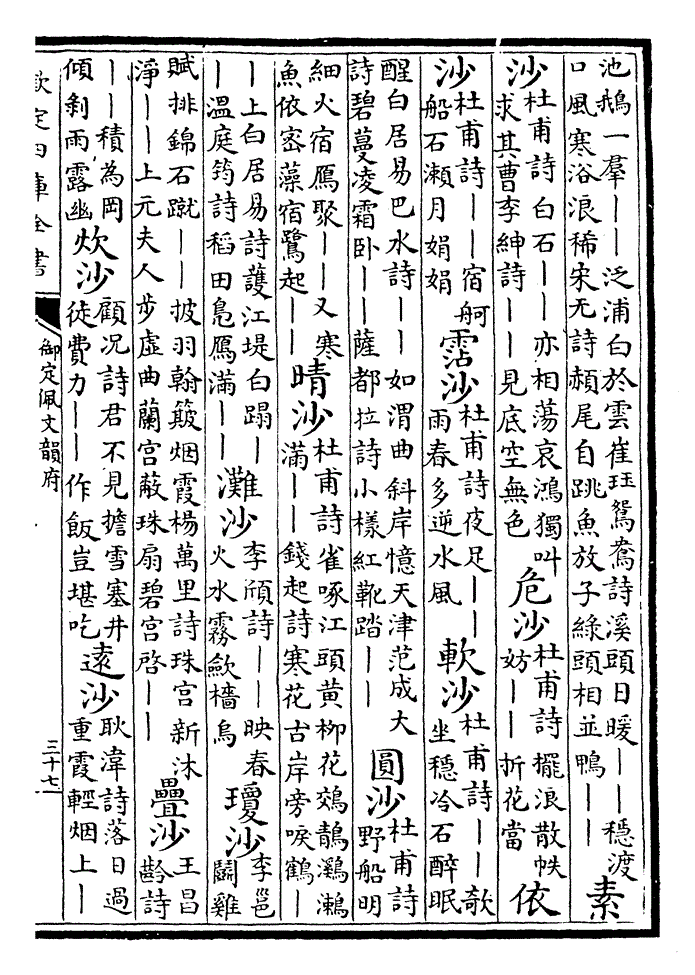 池鵝一羣丨丨泛浦白於雲崔珏鴛鴦詩溪頭日暖丨丨穩渡
口風寒浴浪稀宋无詩頳尾自跳魚放子綠頭相並鴨丨丨
素
沙
杜甫詩白石丨丨亦相蕩哀鴻獨叫
求其曹李紳詩丨丨見底空無色
危沙
杜甫詩擺浪散帙
妨丨丨折花當
依
沙
杜甫詩丨丨宿舸
船石瀬月娟娟
霑沙
杜甫詩夜足丨丨
雨春多逆水風
軟沙
杜甫詩丨丨欹
坐穩冷石醉眠
醒白居易巴水詩丨丨如渭曲斜岸憶天津范成大
詩碧蔓凌霜卧丨丨薩都拉詩小樣紅靴踏丨丨
圓沙
杜甫詩
野船明
細火宿鴈聚丨丨又寒
魚依宻藻宿鷺起丨丨
晴沙
杜甫詩雀啄江頭黄柳花鵁鶄鸂鶒
滿丨丨錢起詩寒花古岸旁唳鶴丨
丨上白居易詩䕶江堤白蹋丨
丨溫庭筠詩稻田鳬鴈滿丨丨
灘沙
李頎詩丨丨映春
火水霧歛檣烏
瓊沙
李邕
鬭雞
賦排錦石蹴丨丨披羽翰簸烟霞楊萬里詩珠宫新沐
淨丨丨上元夫人步虛曲蘭宫蔽珠扇碧宫啓丨丨
疊沙
王昌
齡詩
丨丨積為岡
傾剝雨露幽
炊沙
顧况詩君不見擔雪塞井
徒費力丨丨作飯豈堪吃
遠沙
耿湋詩落日過
重霞輕烟上丨
欽定四庫全書
御定佩文韻府
三十七